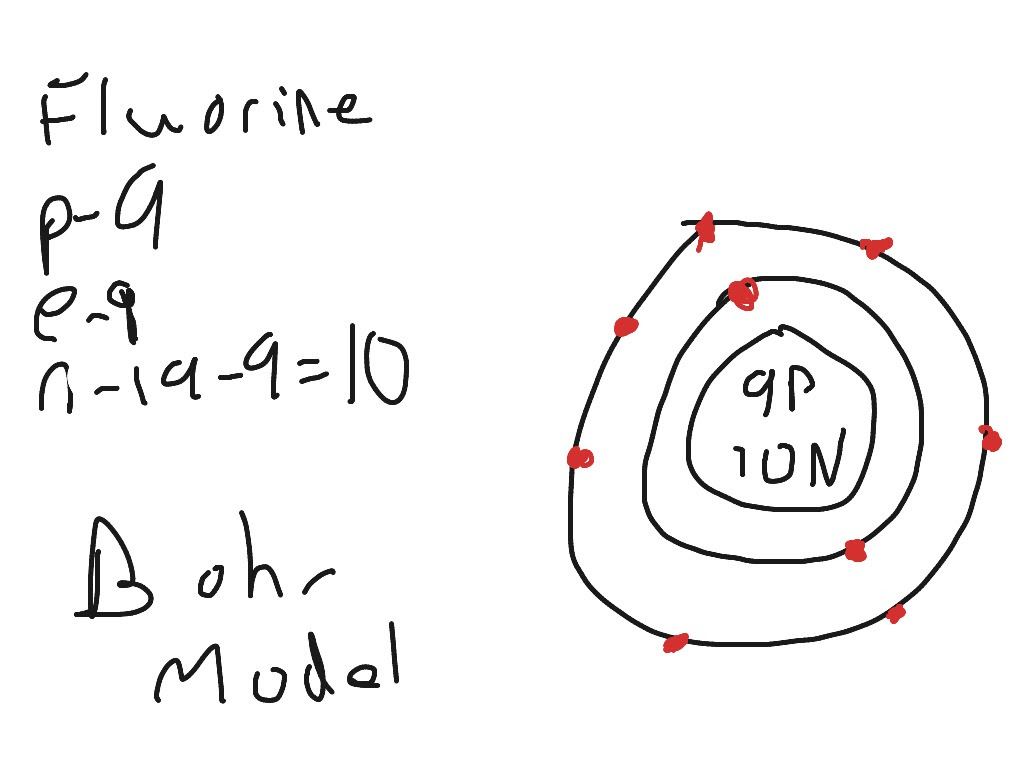 Fluorine
p-9
e-9
n-19-9=10
Bohr
Model
9P
10N